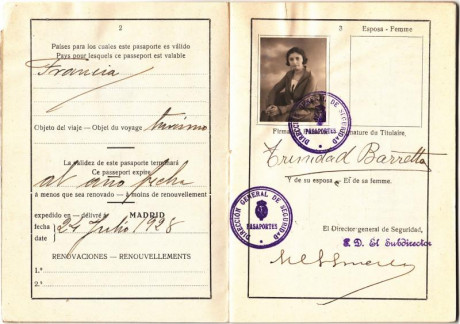 2
Países para los cuales este pasaporte es válido
Pays pour lesquels ce passeport est valable
Francia
Objeto del viaje — Objet du voyage turismo
La validez de este pasaporte terminará
Ce passeport expire
al año fecha
á menos que sea renovado — à moins de renouvellement
expedido en - délivré à MADRID
fecha
date 24 Julio 1928
RENOVACIONES — RENOUVELLEMENTS
1.ª
2.ª
3
Esposa - Femme
DIRECCIÓN GENERAL DE SEGURIDAD
PASAPORTES
Signature de Titulaire.
Trinidad Barretta
Y de su esposa - Et de sa femme.
DIRECCIÓN GENERAL DE SEGURIDAD
PASAPORTES
El Director general de Seguridad,
P. D. El Subdirector